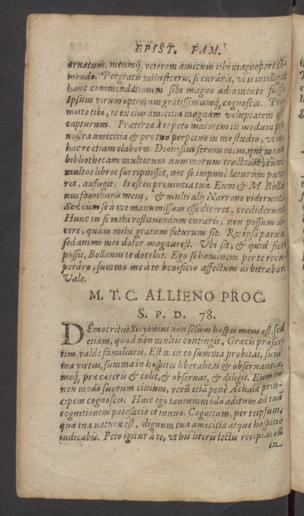 EPIST. FAM.
ornatum, meumq; veterem amicum tibi magnopere cō
mendo. Pergratū mihi feceris, si curaris, vt is intelligat
hanc commendationem sibi magno adiumento fuisse.
Ipsum virum optimum gratissimumq; cognosces. Pro-
mitto tibi, te ex eius amicitia magnam voluptatem
capturum. Præterea à te peto maiorem in modum pro
nostra amicitia & pro tuo perpetuo in me studio, vt in
hac re etiam elabores. Dionysius seruus meus, qui meam
bibliothecam multorum nummorum tractauit, cum
multos libros surripuisset, nec se impunè laturum puta-
ret, aufugit. Is est in prouincia tua. Eum & M. Bolla-
nus familiaris meus, & multi alij Narronæ viderunt.
Sed cum se à me manumissum esse diceret, crediderunt.
Hunc tu si mihi restituendum curaris, non possum di-
cere, quàm mihi gratum futurum sit. Res ipsa parua,
sed animi mei dolor magnus est. Vbi sit, & quid fieri
possit, Bollanus te docebit. Ego si hominem per te recu-
peraro, summo me à te beneficio affectum arbitrabor.
Vale.
M. T. C. ALLIENO PROC.
S. P. D. 78.
DEmocritus Sicyonius non solùm hospes meus est, sed
etiam, quod non multis contingit, Græcis præser-
tim, valdè familiaris. Est n. in eo summa probitas, sum-
ma virtus, summa in hospites liberalitas & obseruantia,
meq; præ cæteris & colit, & obseruat, & diligit. Eum tu
non modo suorum ciuium, verùm etiā penè Achaiæ prin-
cipem cognosces. Huic ego tantummodo aditum ad tuā
cognitionem patefacio et munio. Cognitum, per te ipsum,
quæ tua natura est, dignum tua amicitia atque hospitio
iudicabis. Peto igitur à te, vt his literis lectis recipias eū
in